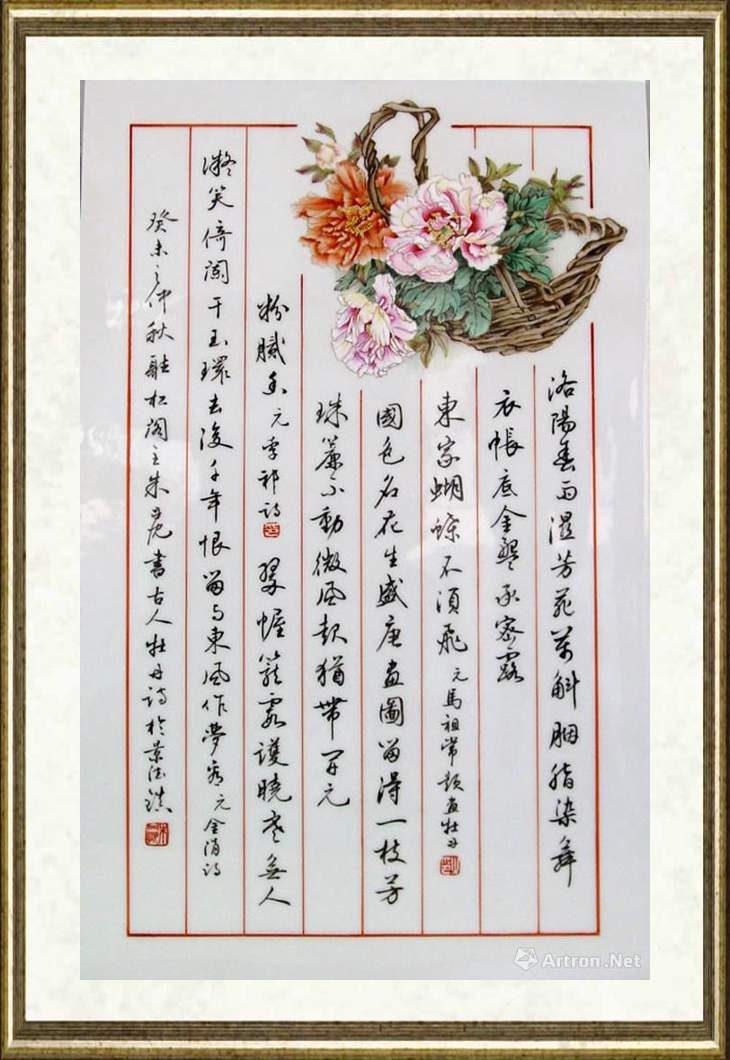 洛陽春雨濕芳菲萬斛胭脂染舞
衣帳底金盤承密露
東家蝴蝶不須飛 元馬祖常題畫牡丹
國色名花生盛唐畫圖留得一枝芳
珠簾不動微風起猶帶开元
粉膩香 元李祁詩 翠幄籠霞護曉寒無人
凝笑倚闌干玉環去後千年恨留与東風作夢看 元金涓詩
癸未之仲秋聽松閣主朱書古人牡丹詩於景德鎮
Artron.Net